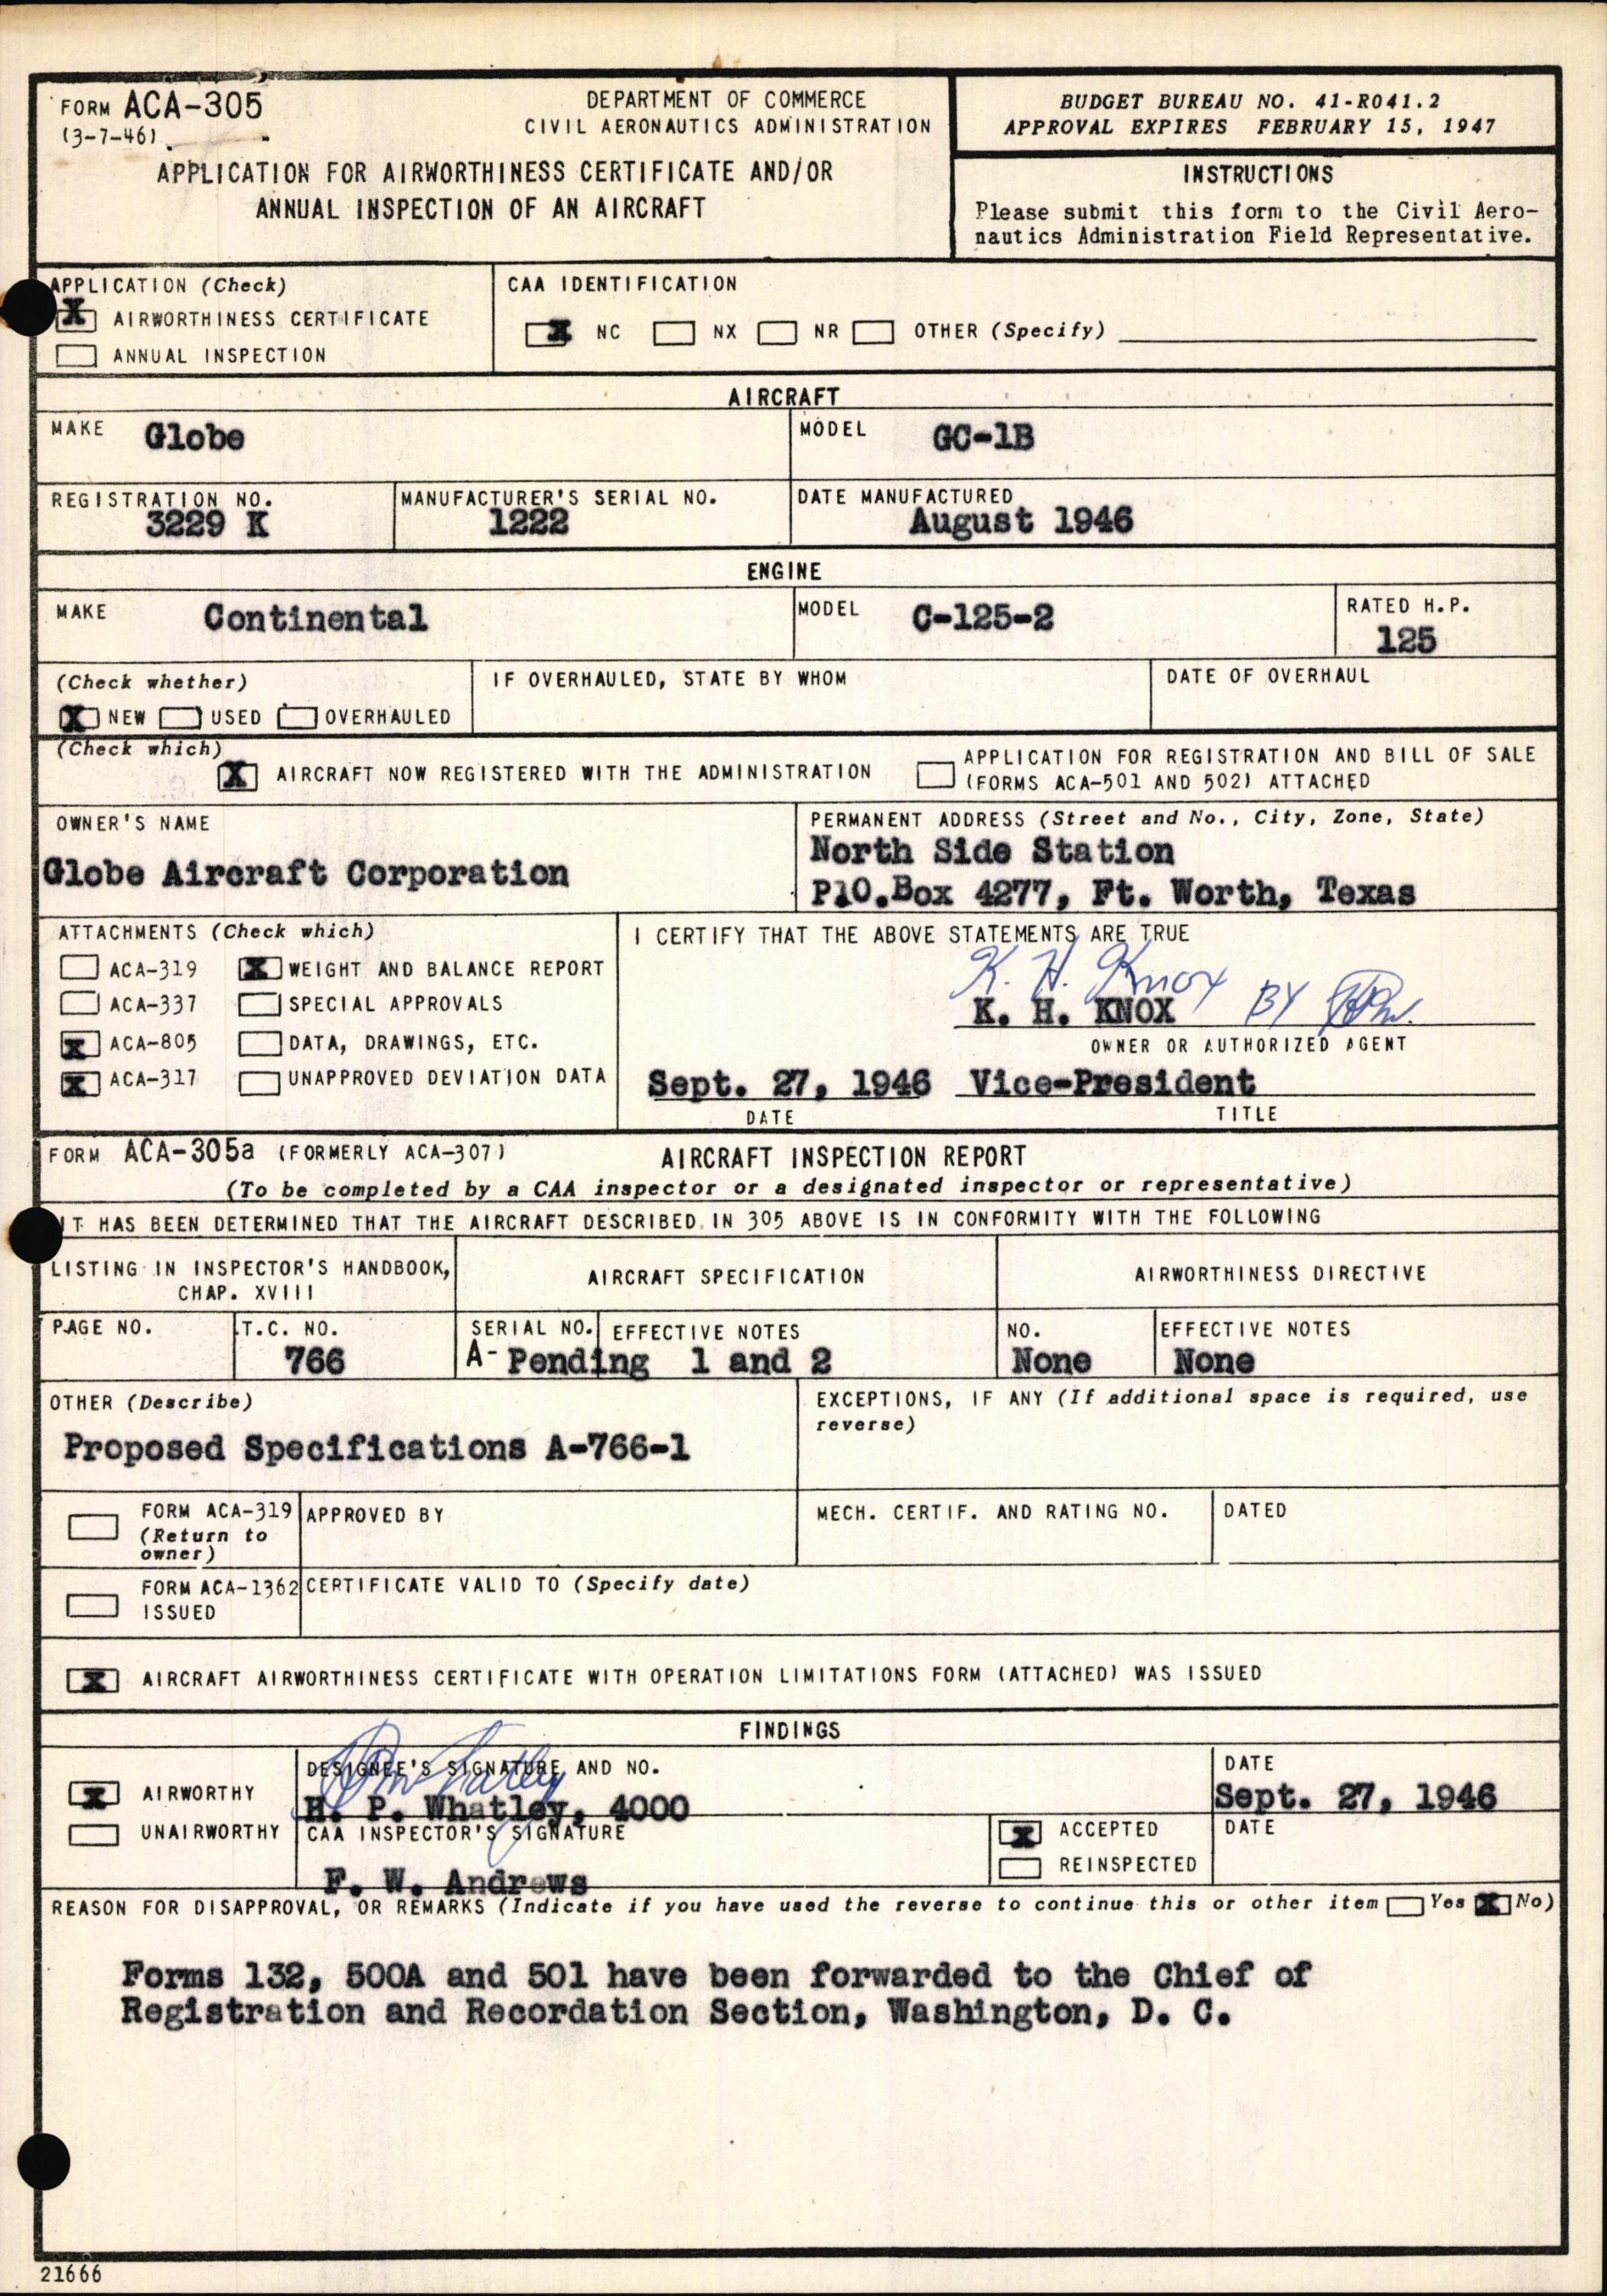 FORM ACA-305
(3-7-46)
DEPARTMENT OF COMMERCE
CIVIL AERONAUTICS ADMINISTRATION
APPLICATION FOR AIRWORTHINESS CERTIFICATE AND/OR
ANNUAL INSPECTION OF AN AIRCRAFT
BUDGET BUREAU NO. 41-R041.2
APPROVAL EXPIRES FEBRUARY 15, 1947
INSTRUCTIONS
Please submit this form to the Civil Aero-
nautics Administration Field Representative.
APPLICATION (Check)
X AIRWORTHINESS CERTIFICATE
ANNUAL INSPECTION
CAA IDENTIFICATION
X NC NX NR OTHER (Specify)
AIRCRAFT
MAKE Globe
MODEL GC-1B
REGISTRATION NO.
3229 K
MANUFACTURER'S SERIAL NO.
1222
DATE MANUFACTURED
August 1946
ENGINE
MAKE Continental
MODEL C-125-2
RATED H.P.
125
(Check whether)
X NEW USED OVERHAULED
IF OVERHAULED, STATE BY WHOM
DATE OF OVERHAUL
(Check which)
X AIRCRAFT NOW REGISTERED WITH THE ADMINISTRATION
APPLICATION FOR REGISTRATION AND BILL OF SALE
(FORMS ACA-501 AND 502) ATTACHED
OWNER'S NAME
Globe Aircraft Corporation
PERMANENT ADDRESS (Street and No., City, Zone, State)
North Side Station
P.O.Box 4277, Ft. Worth, Texas
ATTACHMENTS (Check which)
ACA-319 X WEIGHT AND BALANCE REPORT
ACA-337 SPECIAL APPROVALS
X ACA-805 DATA, DRAWINGS, ETC.
X ACA-317 UNAPPROVED DEVIATION DATA
I CERTIFY THAT THE ABOVE STATEMENTS ARE TRUE
K. H. Knox BY
K. H. KNOX
OWNER OR AUTHORIZED AGENT
Sept. 27, 1946 Vice-President
DATE TITLE
FORM ACA-305a (FORMERLY ACA-307) AIRCRAFT INSPECTION REPORT
(To be completed by a CAA inspector or a designated inspector or representative)
IT HAS BEEN DETERMINED THAT THE AIRCRAFT DESCRIBED IN 305 ABOVE IS IN CONFORMITY WITH THE FOLLOWING
LISTING IN INSPECTOR'S HANDBOOK,
CHAP. XVIII
AIRCRAFT SPECIFICATION
AIRWORTHINESS DIRECTIVE
PAGE NO.
T.C. NO.
766
SERIAL NO.
A- Pending
EFFECTIVE NOTES
1 and 2
NO.
None
EFFECTIVE NOTES
None
OTHER (Describe)
Proposed Specifications A-766-1
EXCEPTIONS, IF ANY (If additional space is required, use
reverse)
FORM ACA-319
(Return to
owner)
APPROVED BY
MECH. CERTIF. AND RATING NO.
DATED
FORM ACA-1362
ISSUED
CERTIFICATE VALID TO (Specify date)
X AIRCRAFT AIRWORTHINESS CERTIFICATE WITH OPERATION LIMITATIONS FORM (ATTACHED) WAS ISSUED
FINDINGS
X AIRWORTHY
UNAIRWORTHY
DESIGNEE'S SIGNATURE AND NO.
H. P. Whatley, 4000
DATE
Sept. 27, 1946
CAA INSPECTOR'S SIGNATURE
F. W. Andrews
X ACCEPTED
REINSPECTED
DATE
REASON FOR DISAPPROVAL, OR REMARKS (Indicate if you have used the reverse to continue this or other item Yes X No)
Forms 132, 500A and 501 have been forwarded to the Chief of
Registration and Recordation Section, Washington, D. C.
21666